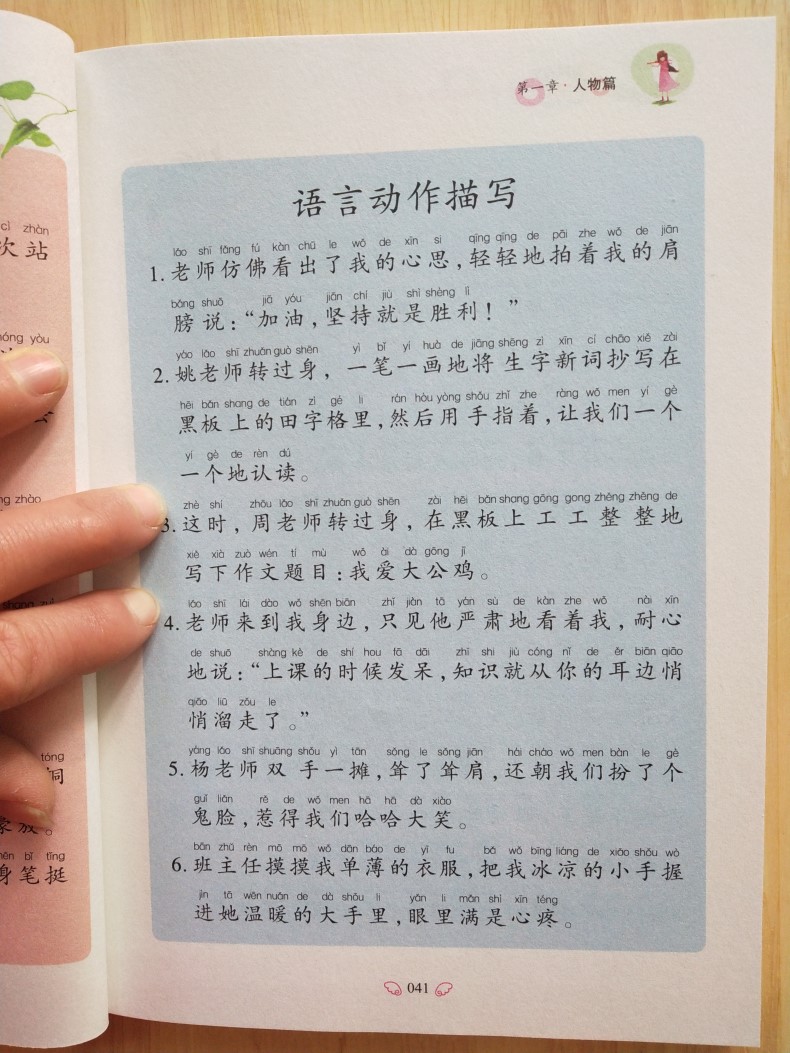 cì zhàn
次站
óng yòu
ng zhào
tóng
桐
ěn bǐ tǐng
身笔挺
第一章·人物篇
语言动作描写
lǎo shī fǎng fú kàn chū le wǒ de xīn si qīng qīng de pāi zhe wǒ de jiān
1.老师仿佛看出了我的心思,轻轻地拍着我的肩
bǎng shuō jiā yóu jiān chí jiù shì shèng lì
膀说:“加油,坚持就是胜利!”
yáo lǎo shī zhuǎn guò shēn yì bǐ yí huà de jiāng shēng zì xīn cí chāo xiě zài
2.姚老师转过身,一笔一画地将生字新词抄写在
hēi bǎn shang de tián zì gé li rán hòu yòng shǒu zhǐ zhe ràng wǒ men yí gè
黑板上的田字格里,然后用手指着,让我们一个
yí gè de rèn dú
一个地认读。
zhè shí zhōu lǎo shī zhuǎn guò shēn zài hēi bǎn shang gōng gong zhěng zhěng de
3.这时,周老师转过身,在黑板上工工整整地
xiě xià zuò wén tí mù wǒ ài dà gōng jī
写下作文题目:我爱大公鸡。
lǎo shī lái dào wǒ shēn biān zhǐ jiàn tā yán sù de kàn zhe wǒ nài xīn
4.老师来到我身边,只见他严肃地看着我,耐心
de shuō shàng kè de shí hou fā dāi zhī shi jiù cóng nǐ de ěr biān qiāo
地说:“上课的时候发呆,知识就从你的耳边悄
qiāo liū zǒu le
悄溜走了。”
yáng lǎo shī shuāng shǒu yì tān sǒng le sǒng jiān hái cháo wǒ men bàn le gè
5.杨老师双手一摊,耸了耸肩,还朝我们扮了个
guǐ liǎn rě de wǒ men hā hā dà xiào
鬼脸,惹得我们哈哈大笑。
bān zhǔ rèn mō mō wǒ dān báo de yī fu bǎ wǒ bīng liáng de xiǎo shǒu wò
6.班主任摸摸我单薄的衣服,把我冰凉的小手握
jìn tā wēn nuǎn de dà shǒu li yǎn li mǎn shì xīn téng
进她温暖的大手里,眼里满是心疼。
041